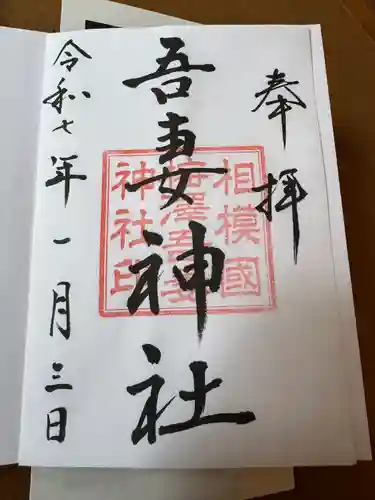 奉拝
吾妻神社
令和七年一月三日
相模國
梅澤吾妻
神社印